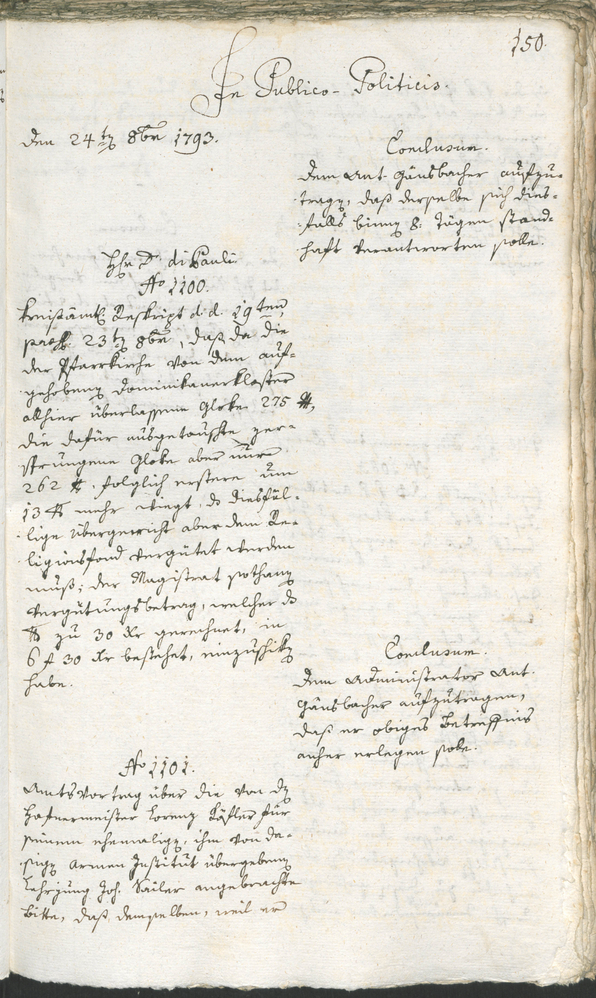 150.
In Publico-Politicis.
den 24ten 8ber 1793.
Conclusum.
dem Ant. Gänsbacher aufzu-
tragen, daß derselbe sich dies-
falls binnen 8. Tägen stand-
haft verantworten solle.
Hr D. di Pauli
No 1100.
Kreisämtl. Reskript d. d. 19ten,
praes. 23ten 8ber, daß da die
der Pfarrkirche von dem auf-
gehobenen Dominikanerkloster
allhier überlassene Gloke 275 ℔,
die dafür ausgetauschte zer-
sprungene Gloke aber nur
262 ℔. folglich erstere um
13 ℔ mehr wiegt, dß diesfäl-
lige Übergewicht aber dem Re-
ligionsfond vergütet werden
muß; der Magistrat sothanen
Vergütungsbetrag, welcher dß
℔ zu 30 Xr gerechnet, in
6 f 30 Xr bestehet, einzuschiken
habe.
Conclusum.
dem Administrator Ant.
Gänsbacher aufzutragen,
daß er obiges Betreffnis
anher erlegen solle.
No 1101.
Amtsvortrag über die von dem
Hafnermeister Lorenz Käsler für
seinen ehemaligen, ihm von da-
sigen Armen Institut übergebenen
Lehrjung Joh. Sailer angebrachte
Bitte, daß demselben, weil er